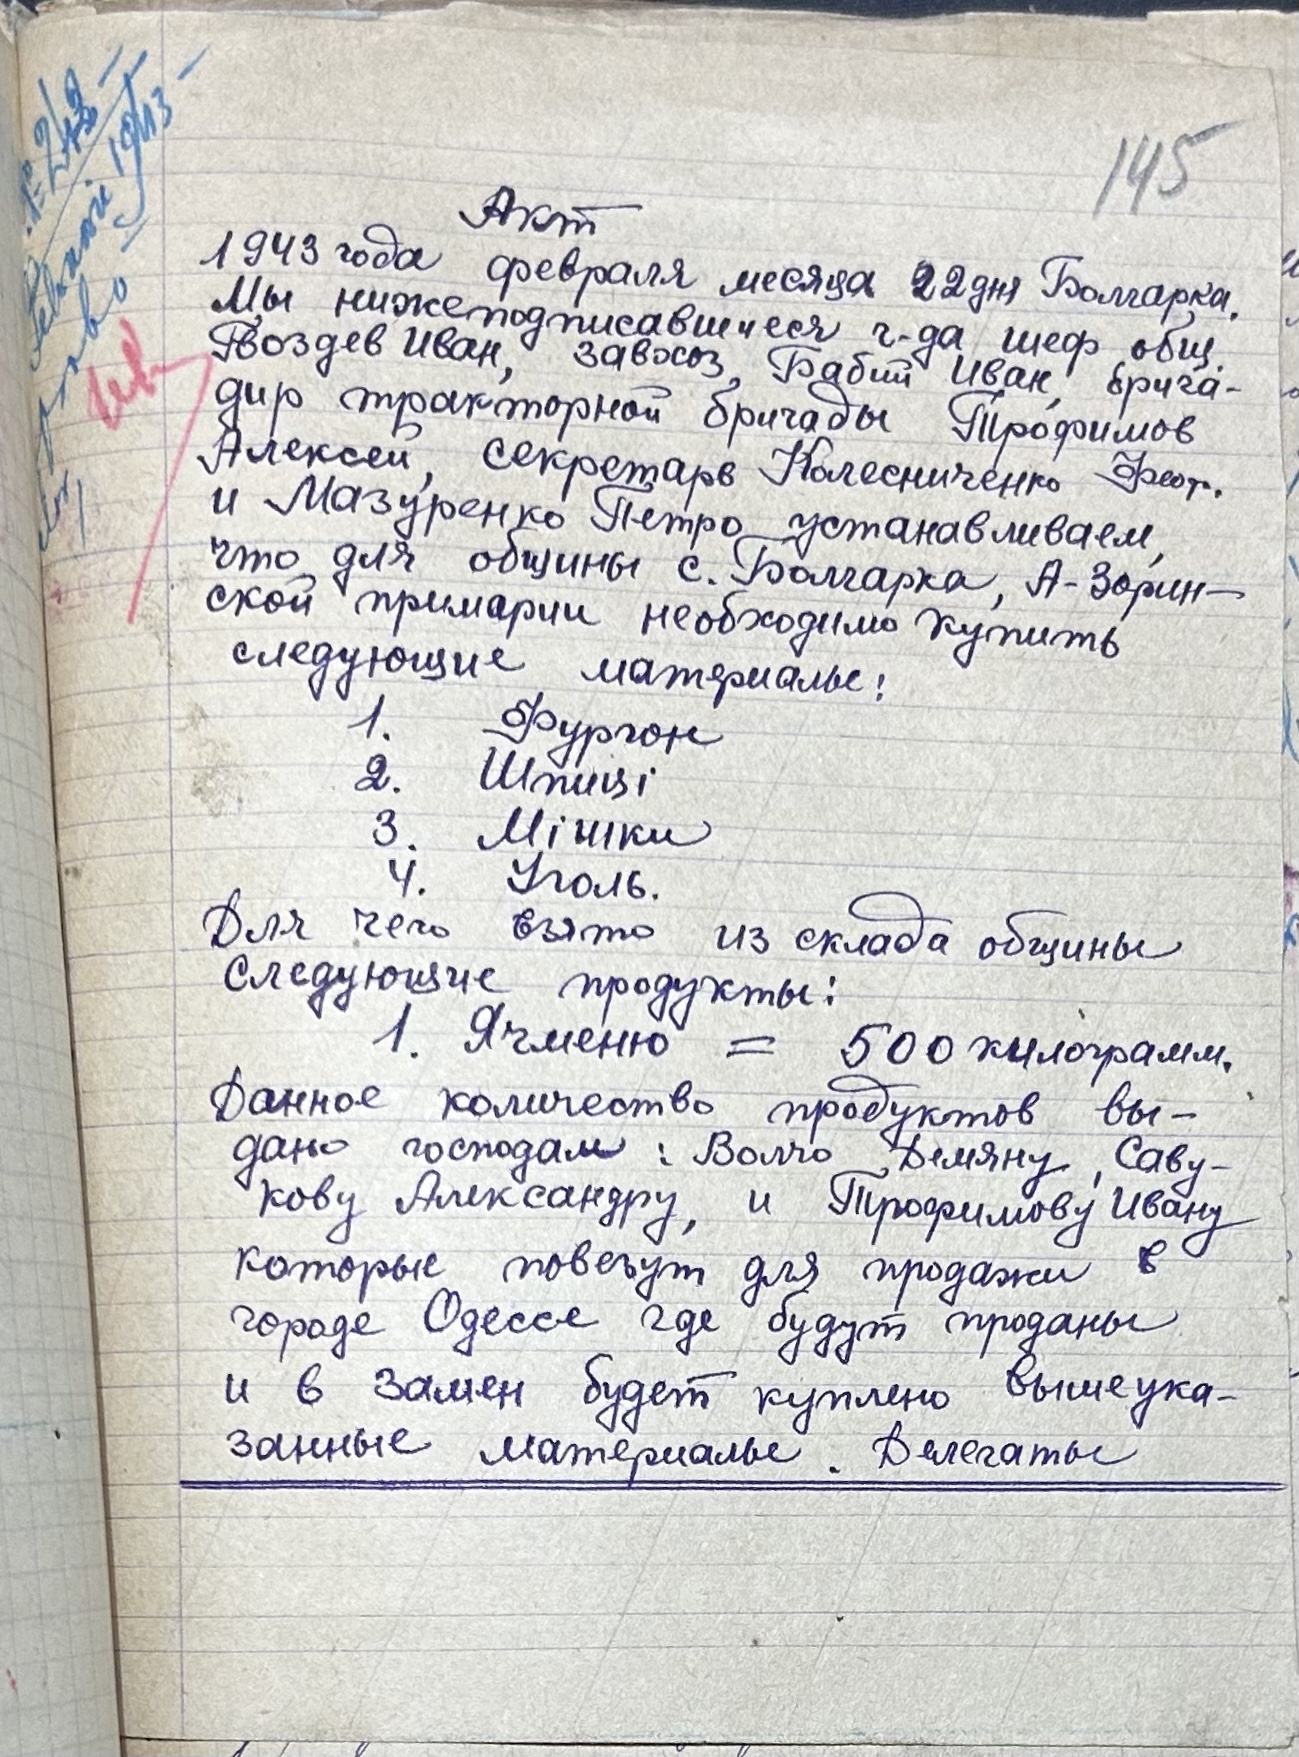 145
№ 243
1943
Акт
1943 года февраля месяца 22 дня Болгарка.
Мы нижеподписавшиеся г-да шеф общ.
Гвоздев Иван, завхоз, Бабий Иван, брига-
дир тракторной бригады Трофимов
Алексей, секретарь Колесниченко Феог.
и Мазуренко Петро устанавливаем,
что для общины с. Болгарка, А-Зорин-
ской примарии необходимо купить
следующие материалы:
1. Фургон
2. Шпиці
3. Мішки
4. Уголь.
Для чего взято из склада общины
следующие продукты:
1. Ячменю = 500 килограмм.
Данное количество продуктов вы-
дано господам: Волчо Демяну, Саву-
кову Александру, и Трофимову Ивану
которые повезут для продажи в
городе Одессе где будут проданы
и в замен будет куплено вышеука-
занные материалы. Делегаты